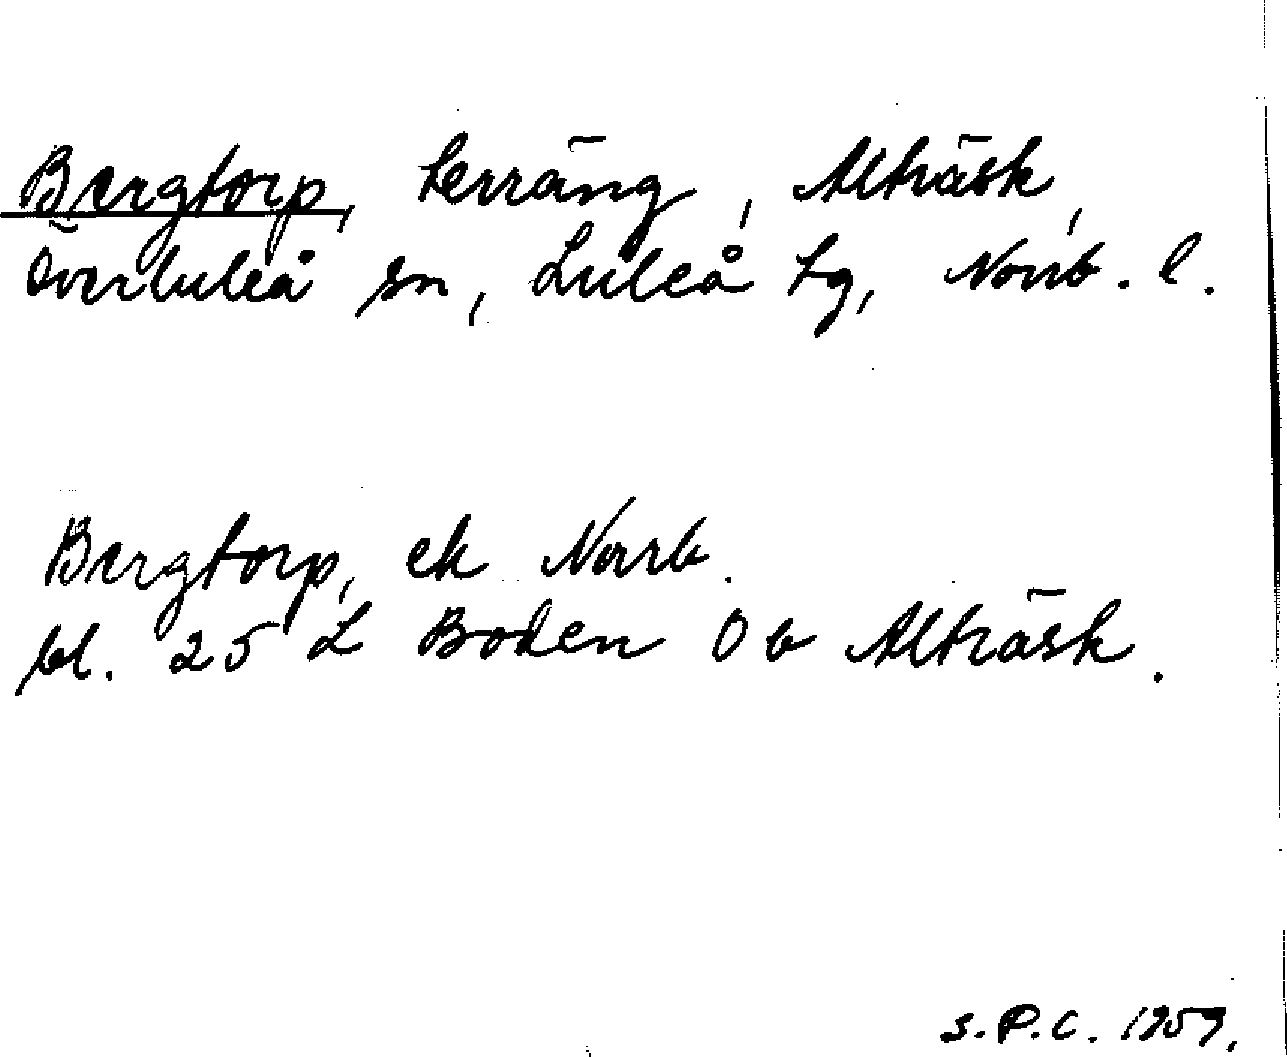 Bergtorp, terräng, Alträsk,
Överluleå sn, Luleå tg, Norrb. l.
Bergtorp, ek Norrb.
bl. 25 L Boden 0 b Alträsk.
S.P.C. 1959.